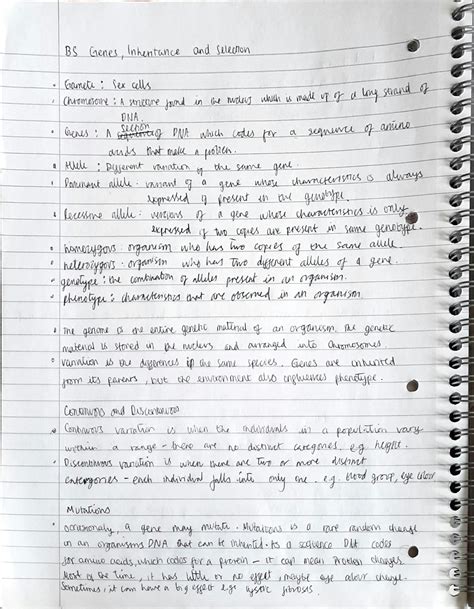 B5 Genes, Inheritance and Selection
• Gamete : Sex cells
• Chromosome : A structure found in the nucleus which is made up of a long strand of
DNA.
• Genes : A section of DNA which codes for a sequence of amino
acids that make a protein.
• Allele : Different variation of the same gene.
• Dominant allele : variant of a gene whose characteristics is always
expressed if present in the genotype.
• Recessive allele : versions of a gene whose characteristics is only
expressed if two copies are present in same genotype.
• homozygous : organism who has two copies of the same allele
• heterozygous : organism who has two different alleles of a gene.
• genotype : the combination of alleles present in an organism.
• phenotype : characteristics that are observed in an organism
• The genome is the entire genetic material of an organism. The genetic
material is stored in the nucleus and arranged into chromosomes.
• variation is the differences in the same species. Genes are inherited
from its parents, but the environment also influences phenotype.
Continuous and Discontinuous
• Continuous variation is when the individuals in a population vary
within a range - there are no distinct categories. e.g. height.
• Discontinuous variation is when there are two or more distinct
categories - each individual falls into only one. e.g. blood group, eye colour
Mutations
• Occasionally, a gene may mutate. Mutations is a rare random change
in an organisms DNA that can be inherited. As a sequence DNA codes
for amino acids, which codes for a protein - it can mean protein changes.
Most of the time, it has little or no effect, maybe eye colour change.
Sometimes, it can have a big effect e.g. cystic fibrosis.